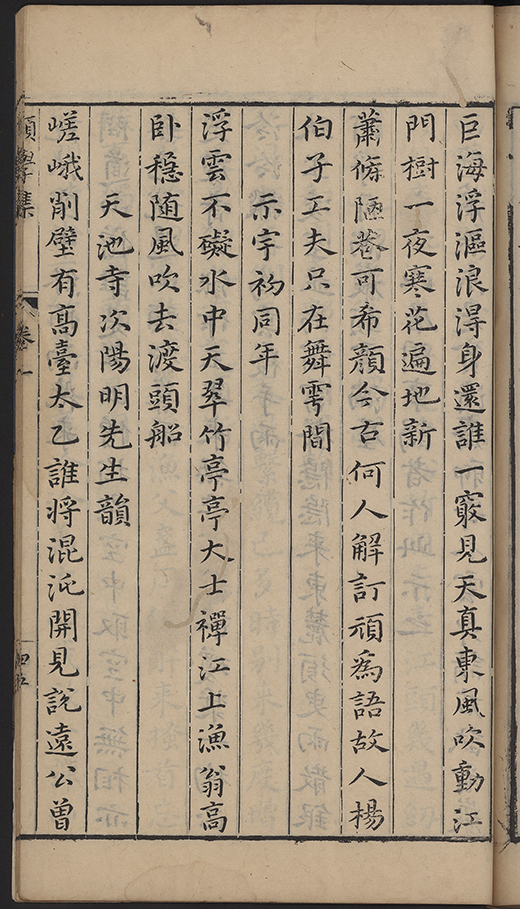 巨海浮漚浪淂身還誰一竅見天真東風吹動江
門樹一夜寒花遍地新
蕭條陋巷可希顔今古何人解訂頑爲語故人楊
伯子工夫只在舞雩間
示宇初同年
浮雲不礙水中天翠竹亭亭大士禪江上漁翁高
卧穏随風吹去渡頭船
天池寺次陽明先生韻
嵯峨削壁有髙臺太乙誰將混沌開見說遠公曽
學集
卷一
四五